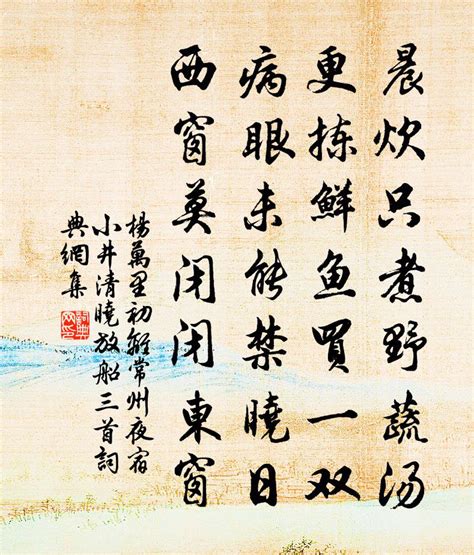 晨炊只煮野蔬汤
更拣鲜鱼買一双
病眼未能禁曉日
西窗莫闭闭東窗
楊萬里初離常州夜宿
小井清曉放船三首詞
典網集